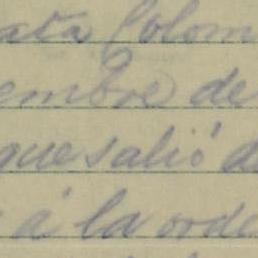 ata Colom
embre de
que salió d
á la orde